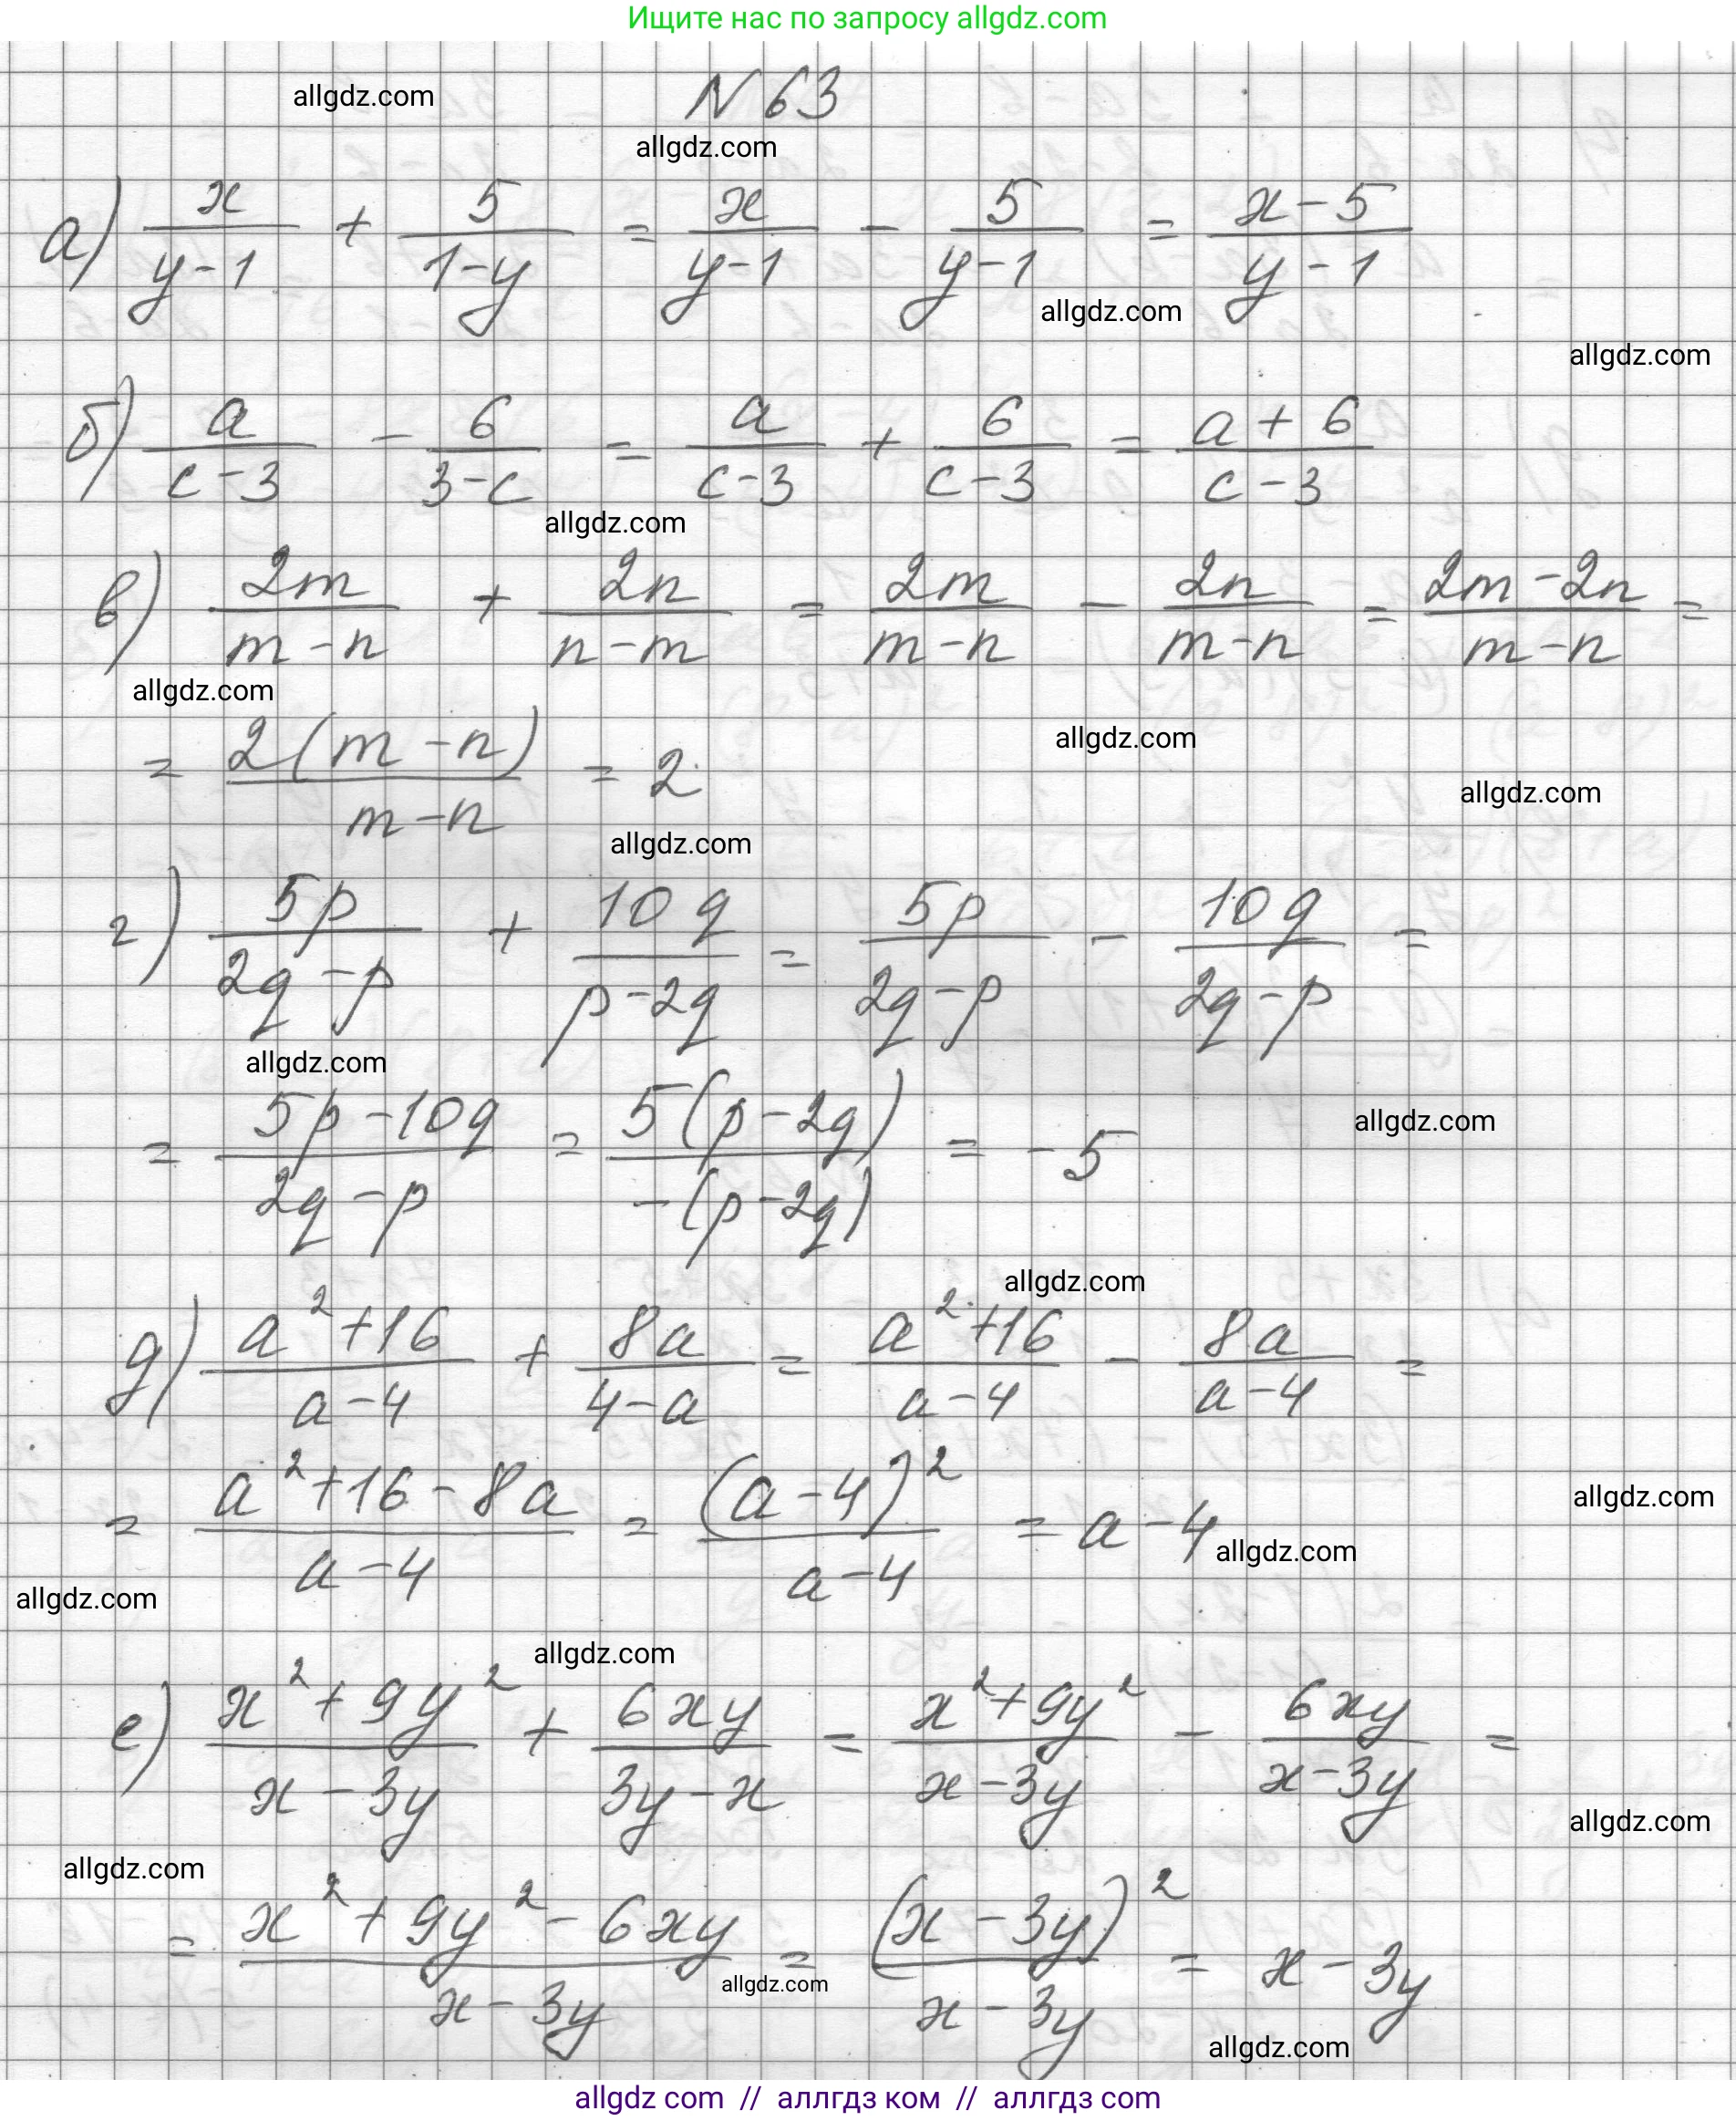 Ищите нас по запросу allgdz.com
allgdz.com
N 63
allgdz.com
а) x/(y-1) + 5/(1-y) = x/(y-1) - 5/(y-1) = (x-5)/(y-1)
allgdz.com
allgdz.com
б) a/(c-3) - 6/(3-c) = a/(c-3) + 6/(c-3) = (a+6)/(c-3)
allgdz.com
в) 2m/(m-n) + 2n/(n-m) = 2m/(m-n) - 2n/(m-n) = (2m-2n)/(m-n) =
allgdz.com
= 2(m-n)/(m-n) = 2
allgdz.com
allgdz.com
allgdz.com
г) 5p/(2q-p) + 10q/(p-2q) = 5p/(2q-p) - 10q/(2q-p) =
allgdz.com
= (5p-10q)/(2q-p) = 5(p-2q)/-(p-2q) = -5
allgdz.com
allgdz.com
д) (a²+16)/(a-4) + 8a/(4-a) = (a²+16)/(a-4) - 8a/(a-4) =
= (a²+16-8a)/(a-4) = (a-4)²/(a-4) = a-4
allgdz.com
allgdz.com
allgdz.com
allgdz.com
е) (x²+9y²)/(x-3y) + 6xy/(3y-x) = (x²+9y²)/(x-3y) - 6xy/(x-3y) =
allgdz.com
allgdz.com
= (x²+9y²-6xy)/(x-3y) = (x-3y)²/(x-3y) = x-3y
allgdz.com
allgdz.com
allgdz com // аллгдз ком // аллгдз com